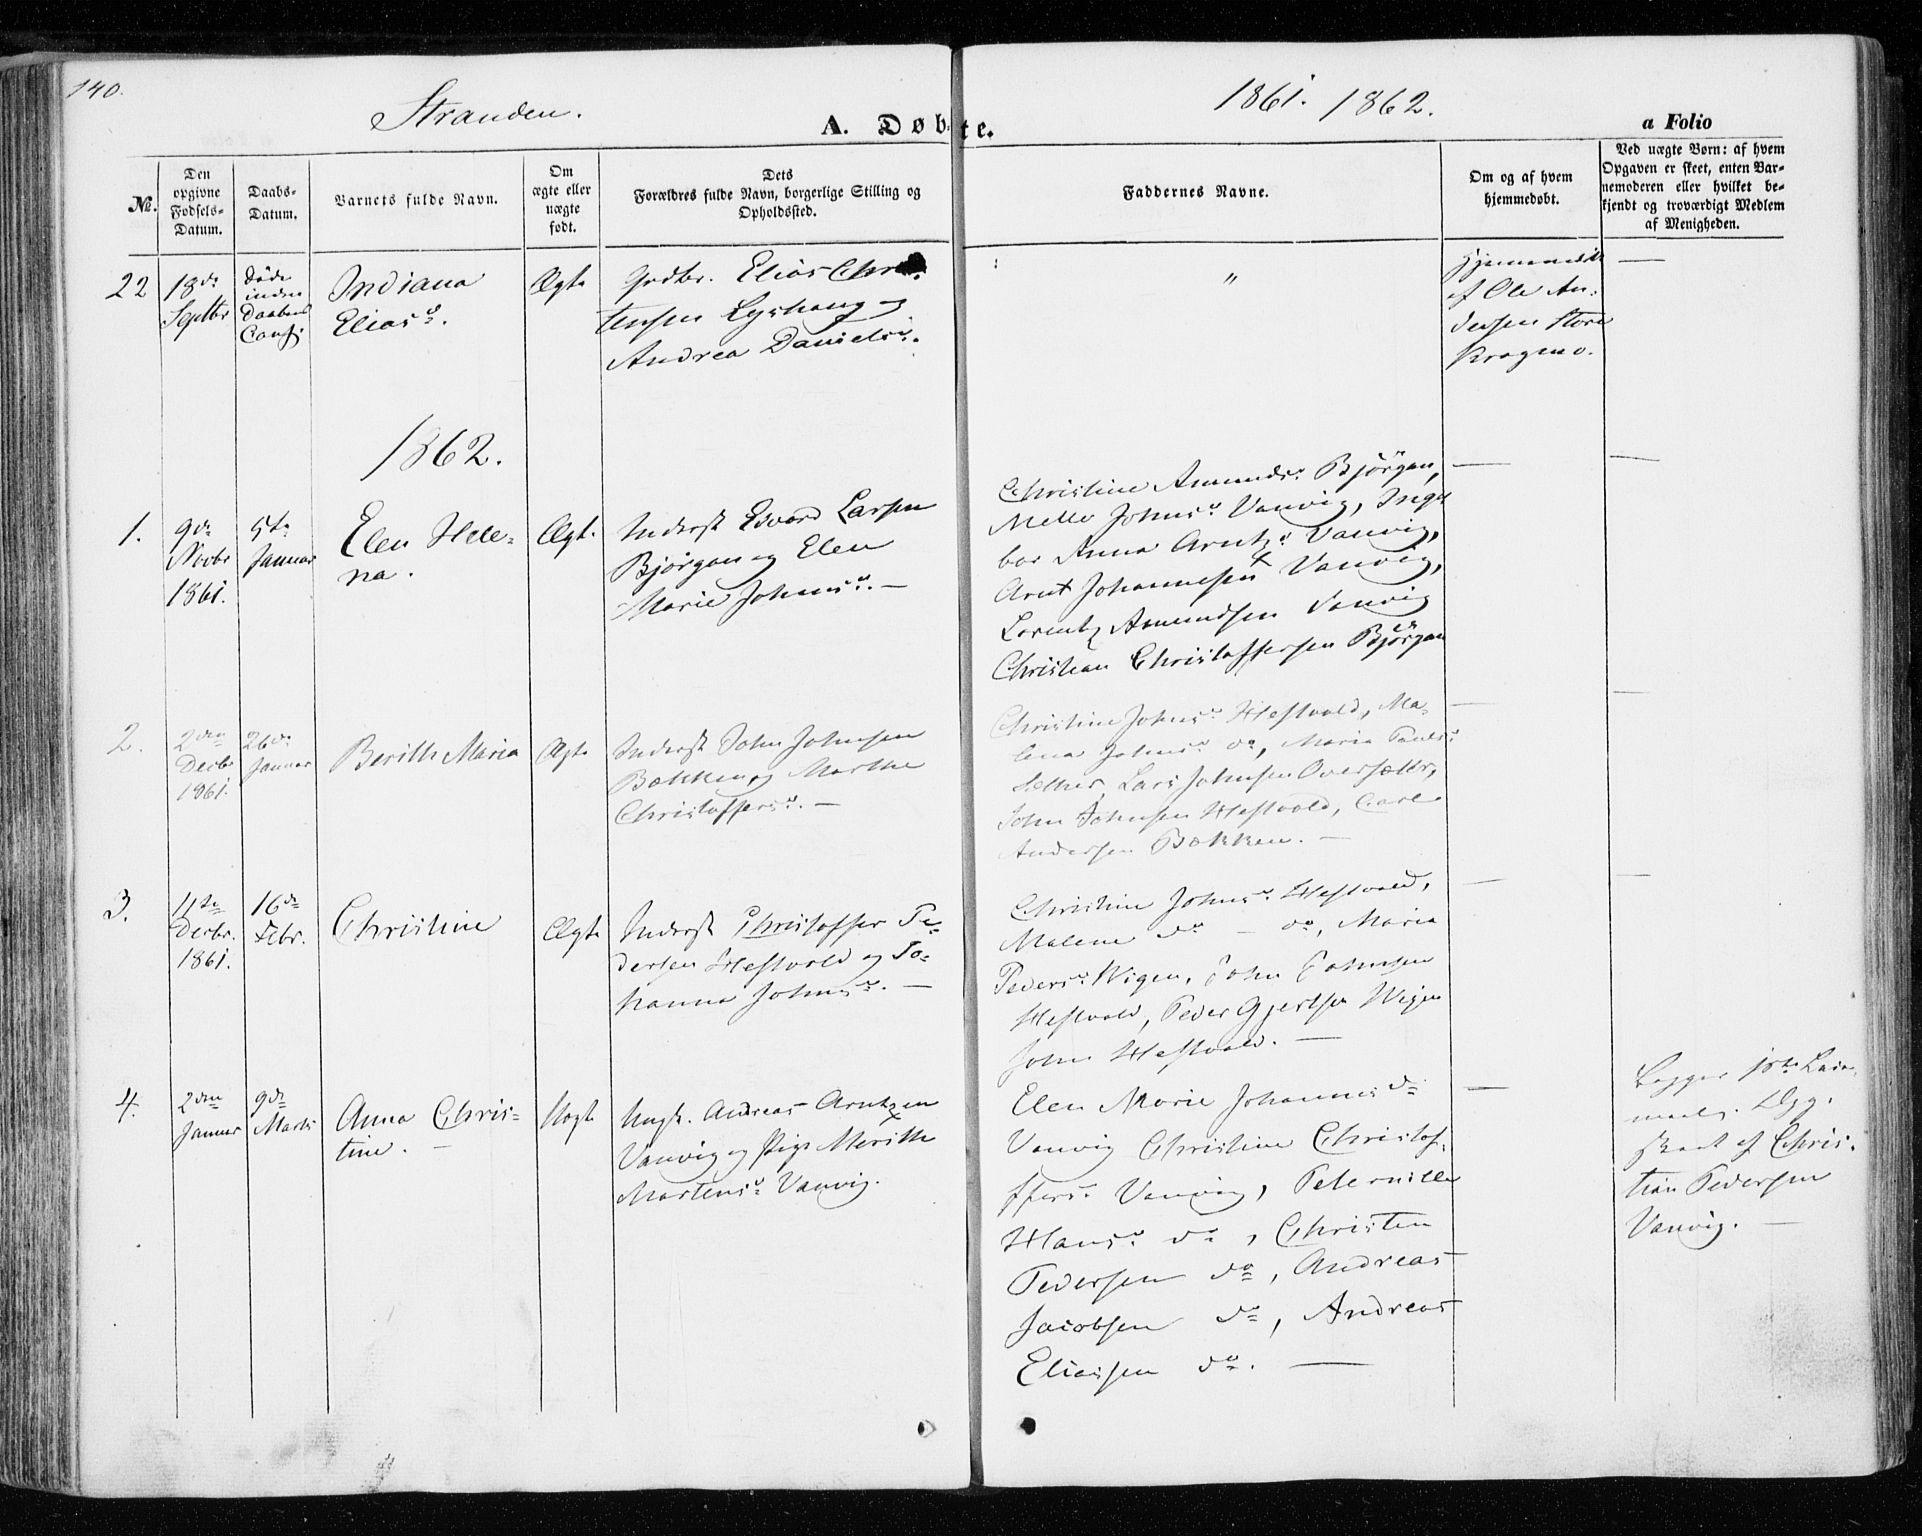 140.
Stranden.
1861. 1862.
A. Døbte.
a Folio
№.
Den opgivne Fødsels-Datum.
Daabs-Datum.
Barnets fulde Navn.
Om ægte eller uægte født.
Dets Forældres fulde Navn, borgerlige Stilling og Opholdssted.
Faddernes Navne.
Om og af hvem hjemmedøbt.
Ved uægte Børn: af hvem Opgaven er skeet, enten Barnemoderen eller hvilket bekjendt og troværdigt Medlem af Menigheden.
22
18de
Septbr
Døde
inden
Daabens
Indiana
Elias d.
Ægte
Elias Chris
tensen Lyshaug og
Andrea Daniels d.
"
af Ole An-
dersen Store
Kragmo.
—
1862.
1.
9de
Novbr
1861.
5te
Januar
Elen Hele-
na.
Ægt.
Inderst Edvard Larsen
Bjørgan og Elen
Marie Johns d. —
Christine Amunds d. Bjørgan,
Mette Johns d. Vanvig, Inge
bor Anna Arntz d. Vanvig,
Arnt Johannesen Vanvig,
Lorentz Amundsen Vanvig
Christian Christoffersen Bjørgan
—
—
2.
2den
Decbr
1861.
26de
Januar
Berith Maria
Ægte
Inderst John Johnsen
Bakken og Marthe
Christoffers d. —
Christine Johns d. Hestvold, Ma-
lena Johns d. do, Maria Pauls d.
Sæther, Lars Johnsen Oversætter,
John Johnsen Hestvold, Carl
Andersen Bakken. —
—
—
3.
11te
Decbr.
1861.
16de
Febr.
Christine
Ægte
Inderst Christoffer Pe-
dersen Hestvold og Jo-
hanna Johns d. —
Christine Johns d. Hestvold,
Malene do - do, Maria
Peders d. Wigen, John Johnsen
Hestvold, Peder Gjertsen Wigen
John Hestvold. —
—
—
4.
2den
Januar
9de
Marts
Anna Chris-
tine. —
Uægte
Ungk. Andreas Arntzen
Vanvig og Pige Merethe
Martens d. Vanvig.
Elen Marie Johannis d.
Vanvig Christine Christof-
fers d. Vanvig, Peternille
Hans d. do, Christen
Pedersen do, Andreas
Jacobsen do, Andreas
Eliassen do. —
—
Begges 1ste Leier
maal. Opg.
skeet af Chris-
tian Pedersen
Vanvig. —